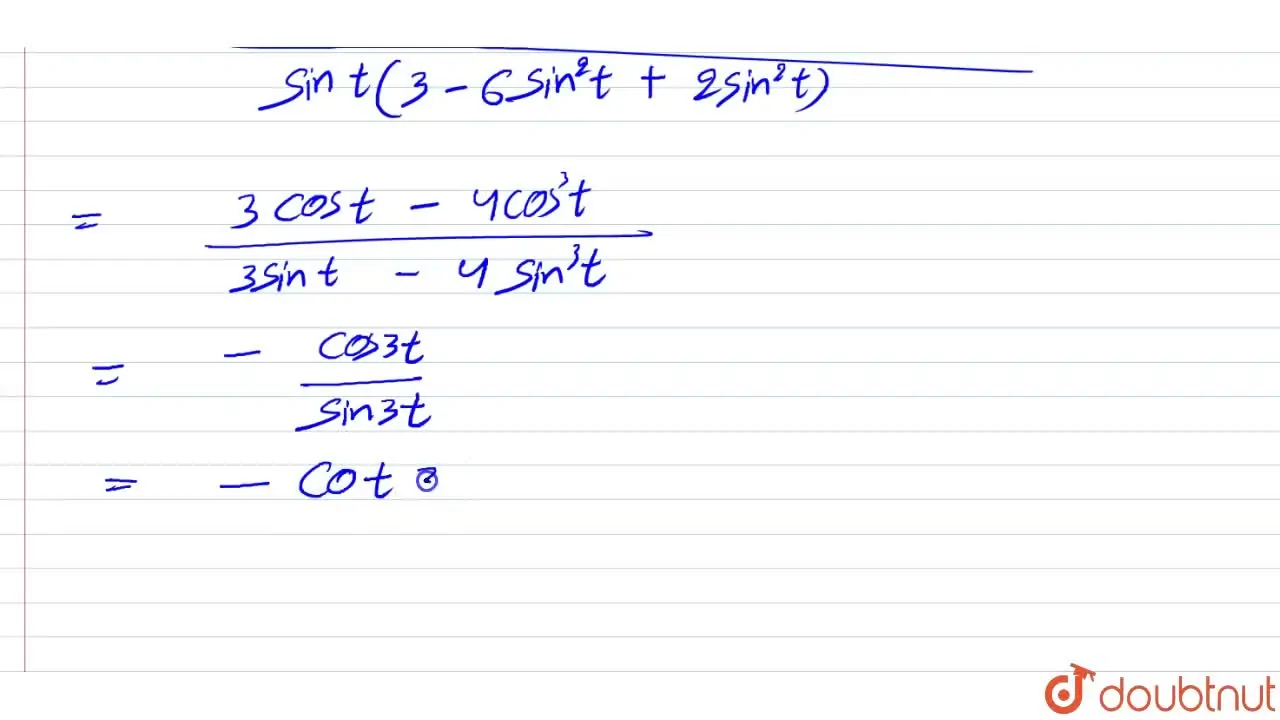 sin t (3 - 6 sin²t + 2 sin²t)
= 3 cos t - 4 cos³t
3 sin t - 4 sin³t
= - cos 3t
sin 3t
= - cot
doubtnut